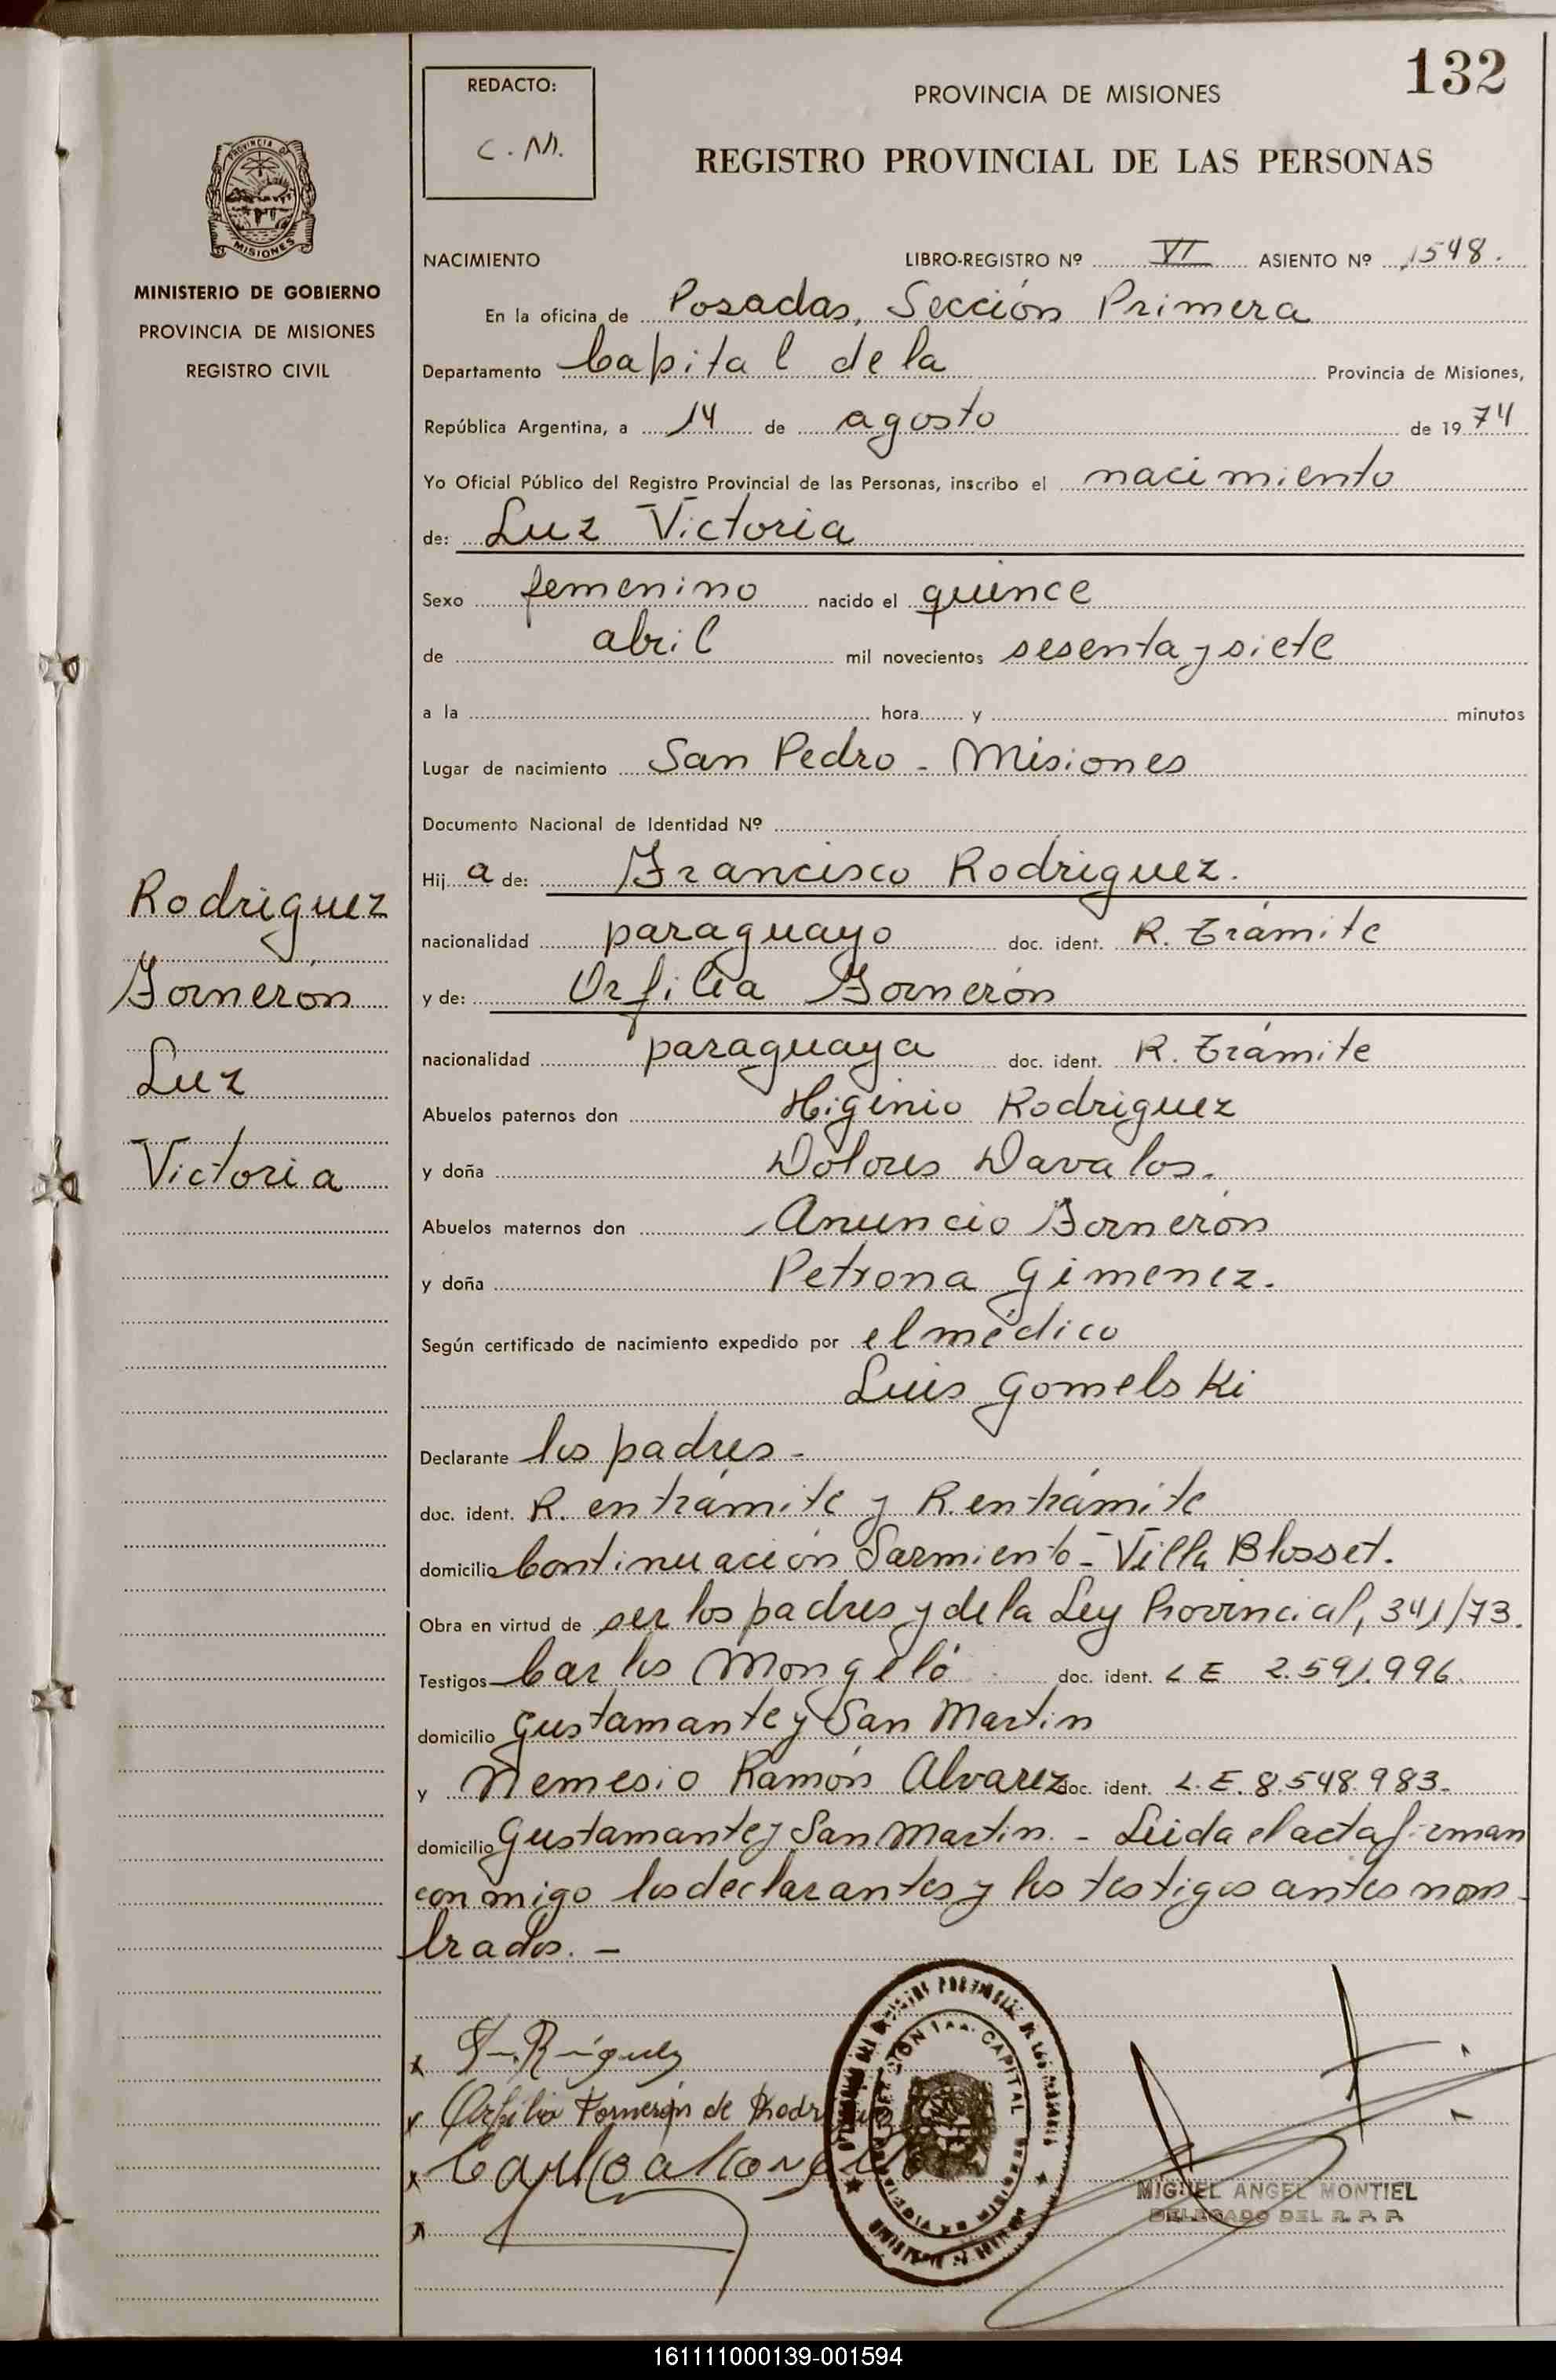 132
REDACTO:
C. M.
PROVINCIA DE MISIONES
REGISTRO PROVINCIAL DE LAS PERSONAS
PROVINCIA DE
MISIONES
MINISTERIO DE GOBIERNO
PROVINCIA DE MISIONES
REGISTRO CIVIL
NACIMIENTO LIBRO-REGISTRO Nº VI ASIENTO Nº 1548.
En la oficina de Posadas, Sección Primera
Departamento Capital de la Provincia de Misiones,
República Argentina, a 14 de agosto de 1974
Yo Oficial Público del Registro Provincial de las Personas, inscribo el nacimiento
de: Luz Victoria
Sexo femenino nacido el quince
de abril mil novecientos sesenta y siete
a la hora y minutos
Lugar de nacimiento San Pedro - Misiones
Documento Nacional de Identidad Nº
Hij a de: Francisco Rodriguez.
nacionalidad paraguayo doc. ident. R. trámite
y de: Orfilia Fornerón
nacionalidad paraguaya doc. ident. R. trámite
Abuelos paternos don Higinio Rodriguez
y doña Dolores Davalos.
Abuelos maternos don Anuncio Fornerón
y doña Petrona Gimenez.
Según certificado de nacimiento expedido por el médico
Luis Gomelski
Declarante los padres -
doc. ident. R. en trámite y R. en trámite
domicilio Continuación Sarmiento - Villa Blosset.
Obra en virtud de ser los padres y de la Ley Provincial, 341/73.
Testigos Carlos Mongeló doc. ident. L E 2.591.996.
domicilio Gustamante y San Martin
y Nemesio Ramón Alvarez doc. ident. L.E. 8.548.983-
domicilio Gustamante y San Martin. - Leida el acta firman
conmigo los declarantes y los testigos antes nom-
brados. -
Rodriguez
Fornerón
Luz
Victoria
Orfilia Fornerón de Rodriguez
SECCION 1ra. CAPITAL
MIGUEL ANGEL MONTIEL
DELEGADO DEL R. P. P.
161111000139-001594